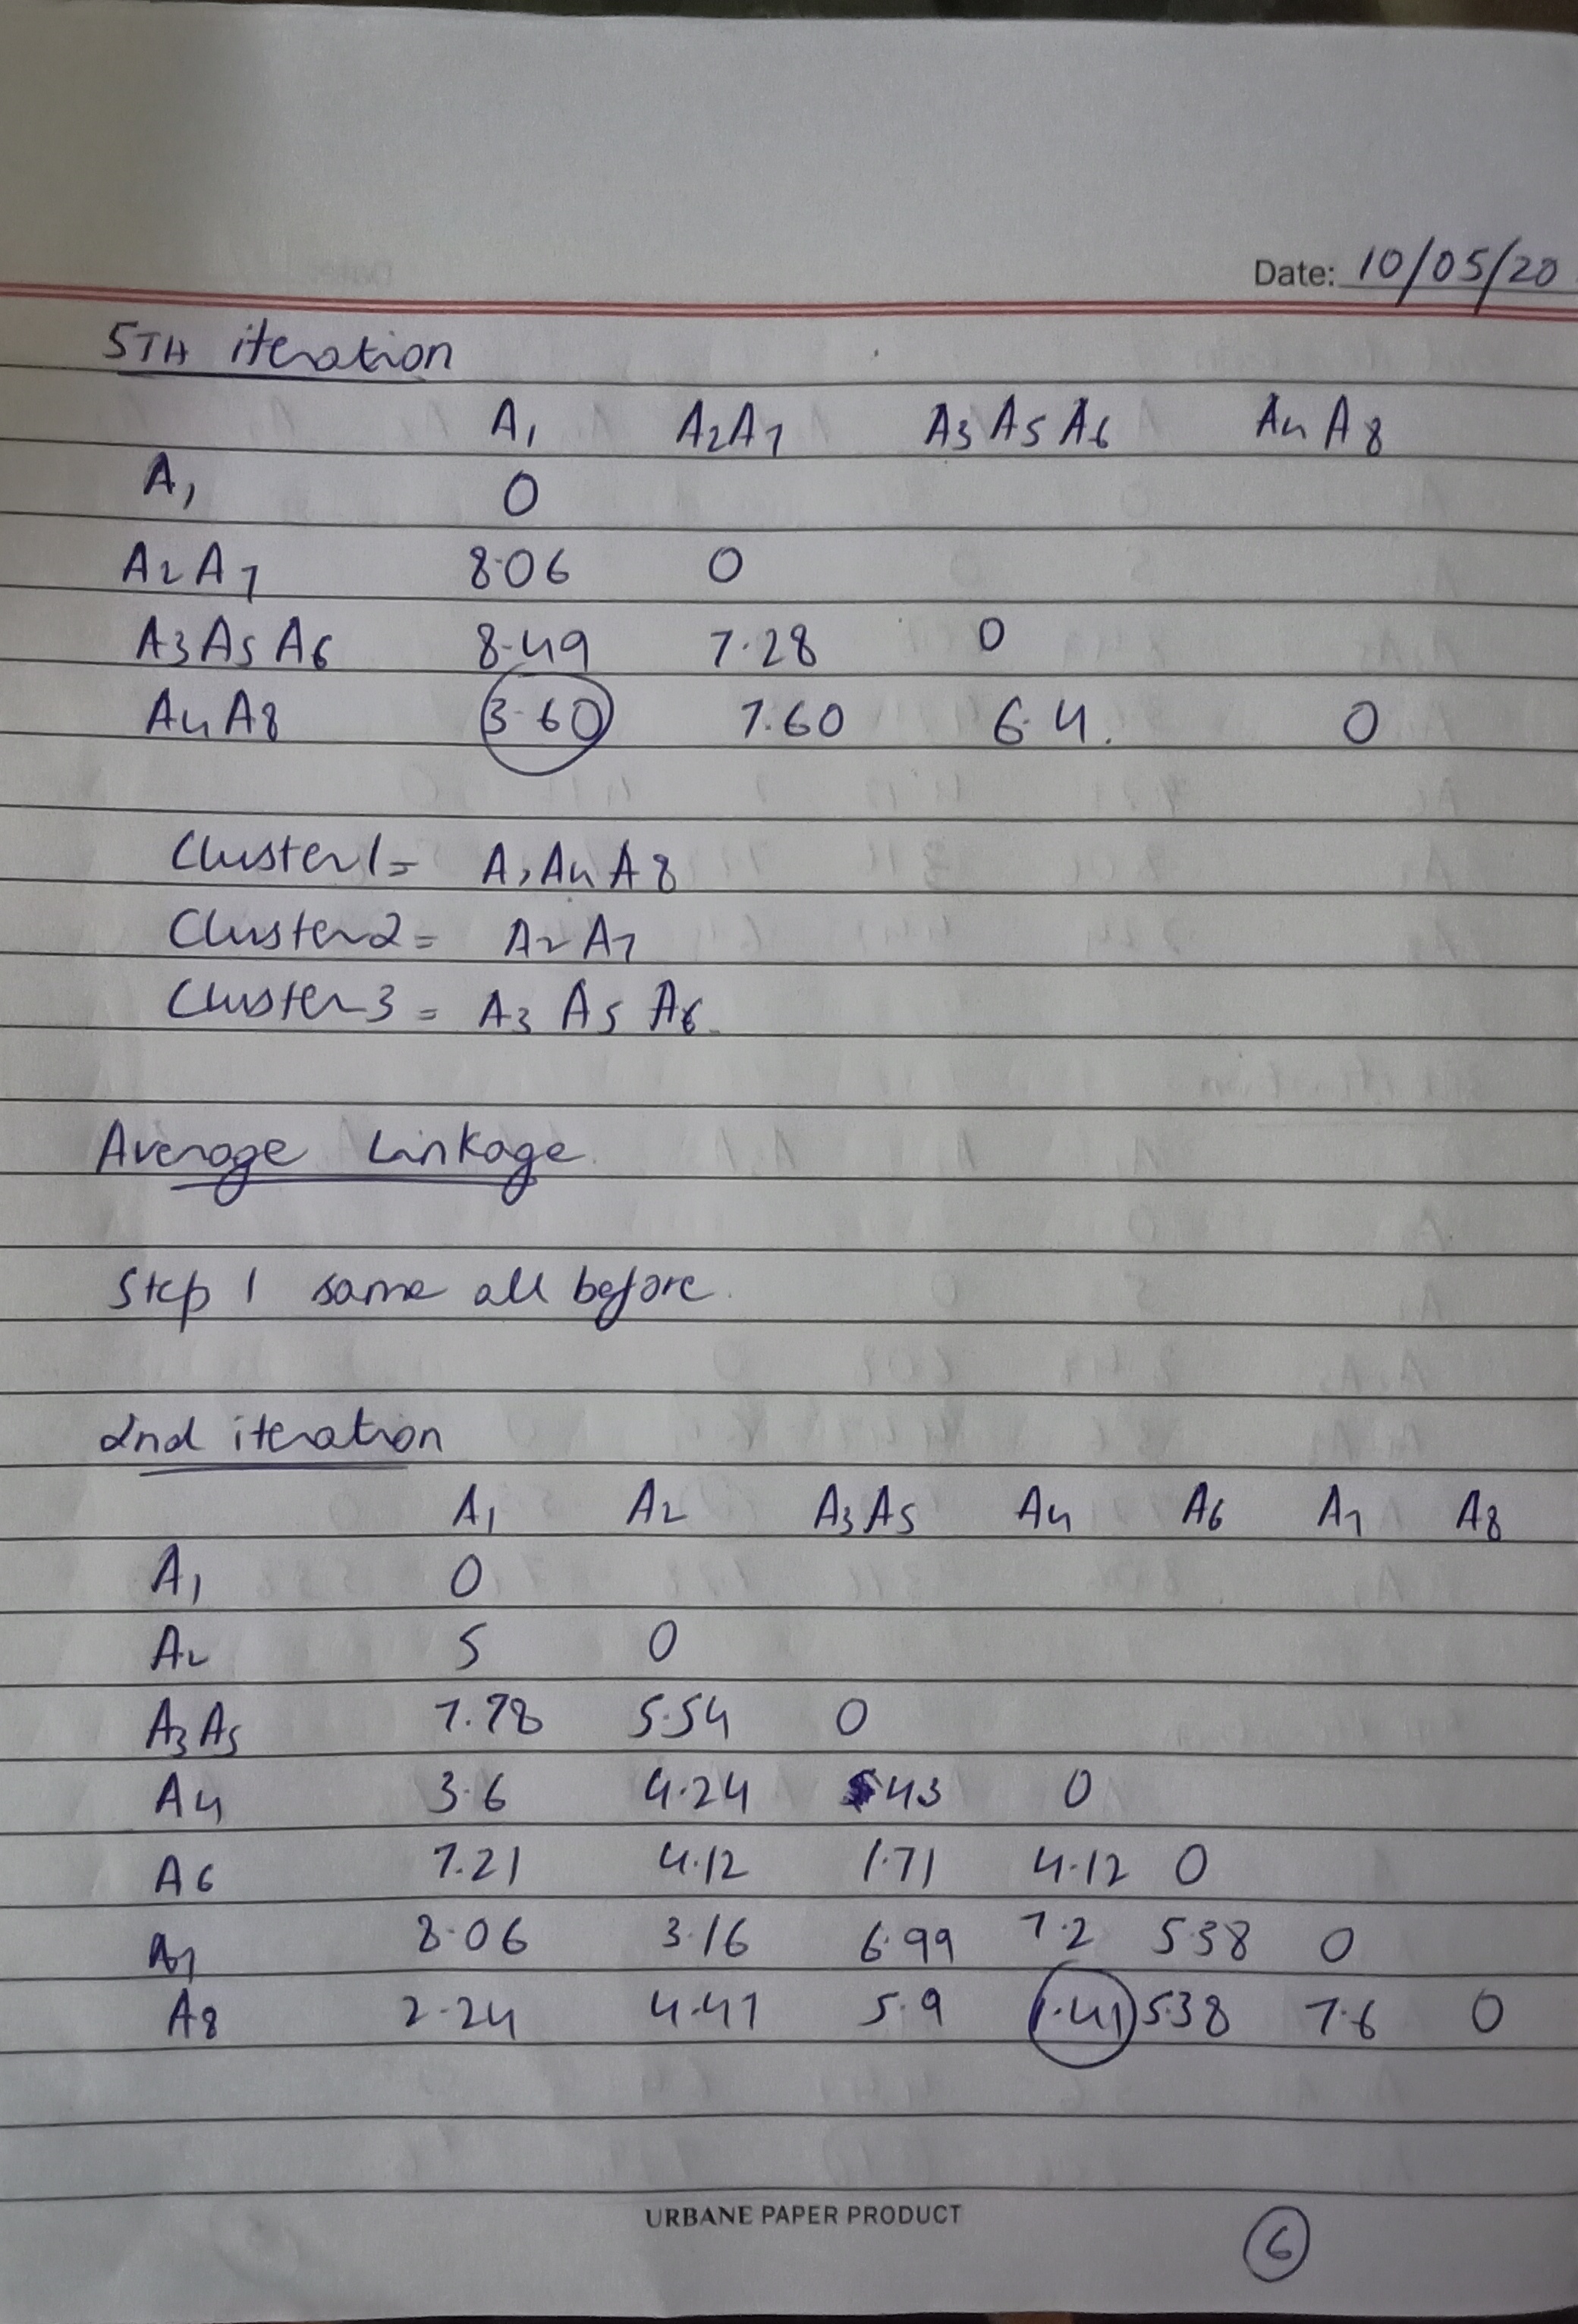 Date: 10/05/20
5TH iteration
A1 A2A7 A3 A5 A6 A4 A8
A1 0
A2A7 8.06 0
A3A5 A6 8.49 7.28 0
A4A8 3.60 7.60 6.4. 0
Cluster1= A1 A4 A8
Cluster2= A2 A7
Cluster3 = A3 A5 A6.
Average Linkage.
Step 1 same all before.
2nd iteration
A1 A2 A3A5 A4 A6 A7 A8
A1 0
A2 5 0
A3A5 7.78 5.54 0
A4 3.6 4.24 43 0
A6 7.21 4.12 1.71 4.12 0
A7 8.06 3.16 6.99 7.2 5.38 0
A8 2.24 4.47 5.9 1.41 5.38 7.6 0
URBANE PAPER PRODUCT
6